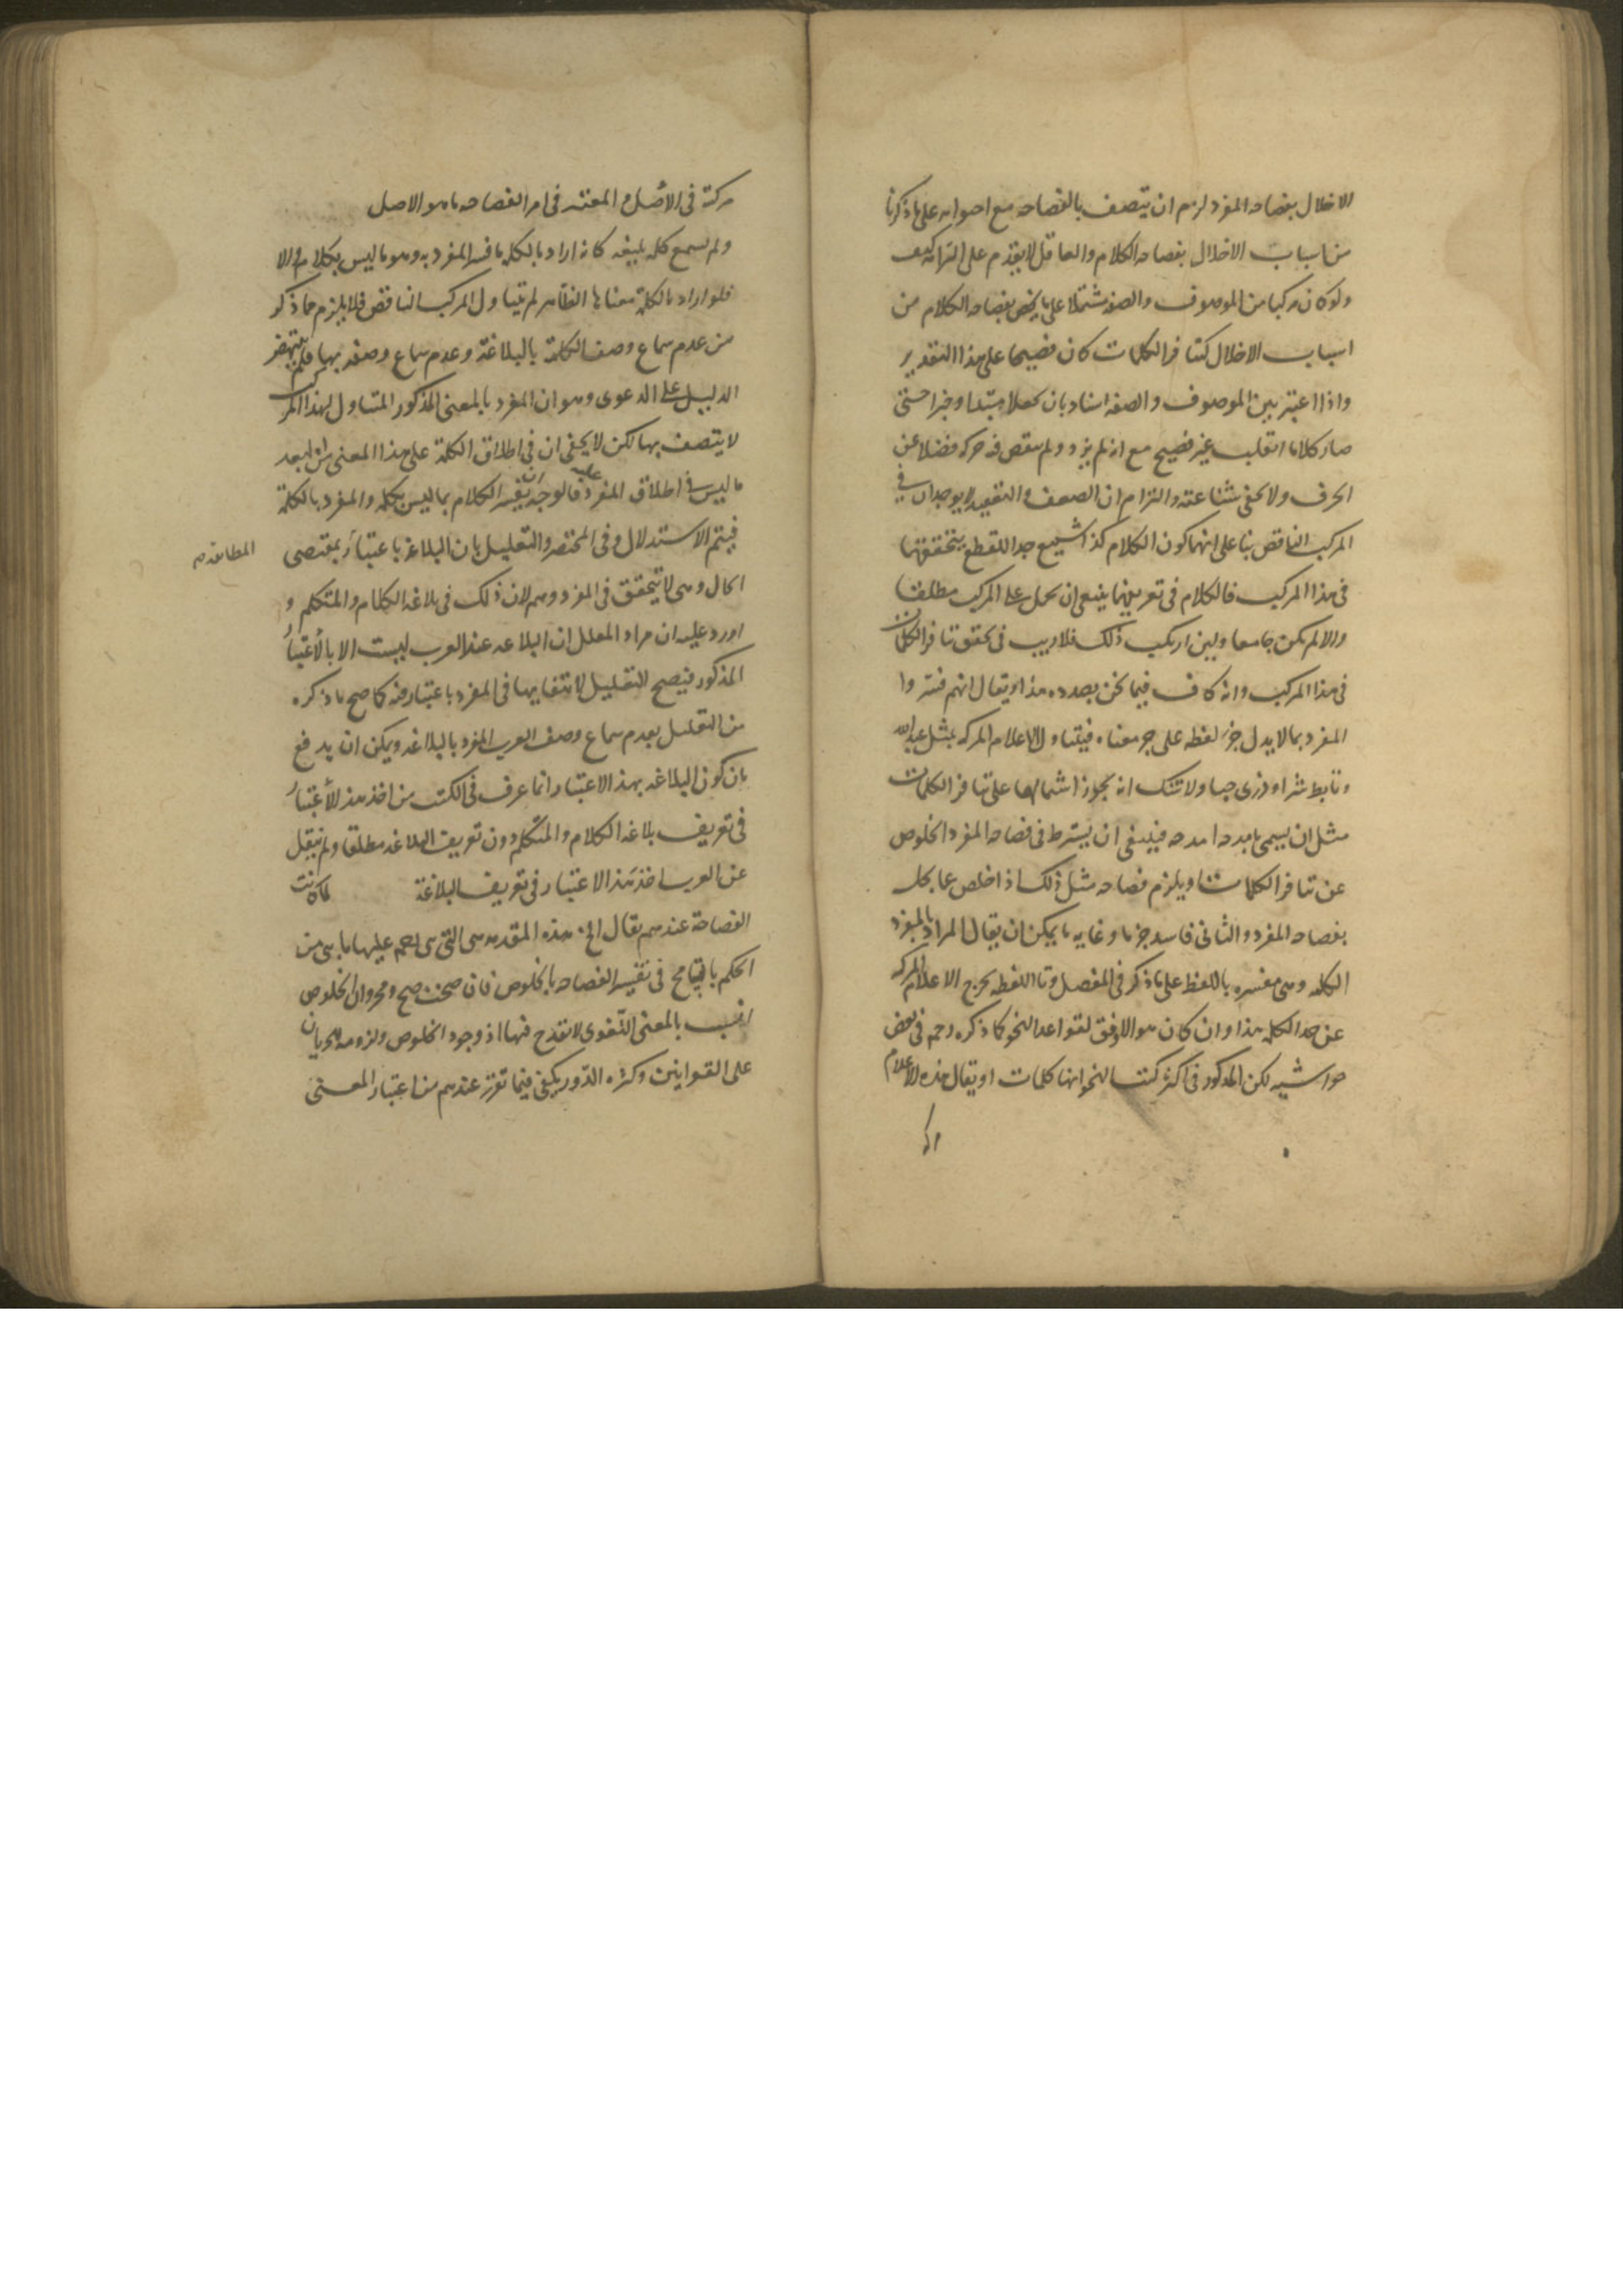 الاخلال بفصاحه المفرد لزم ان يتصف بالفصاحه مع احواله على ما ذكرنا
من اسباب الاخلال بفصاحه الكلام والعاقل لا يقدم على التزامه كيف
ولو كان مركبا من الموصوف والصفه مشتملا على ما يخص بفصاحه الكلام من
اسباب الاخلال كتنافر الكلمات كان فصيحا على هذا التقدير
واذا اعتبر بين الموصوف والصفه اسناد بان كعلا مبتدا وخبرا حتى
صار كلاما انقلب غير فصيح مع انه لم يزد ولم ينقص فيه حركه فضلا عن
الحرف ولا يخفى شناعته والتزام ان الضعف والتعقيد لا يوجدان في
المركب الناقص بنا على انهما كون الكلام كذا شنيع جدا للقطع بتحققهما
فى هذا المركب فالكلام فى تعريفهما ينبغى ان يحمل على المركب مطلقا
والا لم يكن جامعا ولين ارتكب ذلك فلا ريب فى تحقق تنافر الكلمات
فى هذا المركب وانه كاف فيما نحن بصدده هذا او يقال انهم فسروا
المفرد بما لا يدل جزء لفظه على جزء معناه فيتناول الاعلام المركبه مثل عبد الله
وتابط شرا وذرى حبا ولا شك انه يجوز اشتمالها على تنافر الكلمات
مثل ان يسمى بامدحه امدحه فينبغى ان يشترط فى فصاحه المفرد الخلوص
عن تنافر الكلمات او يلزم فصاحه مثل ذلك اذا خلص عما يخل
بفصاحه المفرد والثانى فاسد جزما وغايه ما يمكن ان يقال المراد بالمفرد
الكلمه وهى مفسره باللفظ على ما ذكر فى المفصل وتا اللفظه يخرج الاعلام المركبه
عن حد الكلمه هذا وان كان هو الاوفق لقواعد النحو كما ذكره رحمه فى بعض
حواشيه لكن المذكور فى اكثر كتب النحو انها كلمات او يقال هذه الاعلام
مركبة فى الأصل والمعتبر فى امر الفصاحه ما هو الاصل
ولم يسمع كلمه بليغه كانه اراد بالكلمه ما فسر المفرد به وهو ما ليس بكلام والا
فلو اراد بالكلمة معناها الظاهر لم يتناول المركب الناقص فلا يلزم مما ذكر
من عدم سماع وصف الكلمة بالبلاغة وعدم سماع وصفه بها فلم ينتهض
الدليل على الدعوى وهو ان المفرد بالمعنى المذكور المتناول لهذا المركب
لا يتصف بها لكن لا يخفى ان فى اطلاق الكلمة على هذا المعنى من البعد
ما ليس فى اطلاق المفرد عليه فالوجه ان يفسر الكلام بما ليس بكلمه والمفرد بالكلمة
فيتم الاستدلال وفى المختصر والتعليل بان البلاغة باعتبار بمقتضى
المطابقه
الحال وهى لا تتحقق فى المفرد وهم لان ذلك فى بلاغه الكلام والمتكلم و
اورد عليه ان مراد المعلل ان البلاغه عند العرب ليست الا بالأعتبار
المذكور فيصح التعليل لانتفايها فى المفرد باعتباره كما صح ما ذكره
من التعليل بعدم سماع وصف العرب المفرد بالبلاغه ويمكن ان يدفع
بان كون البلاغه بهذا الاعتبار انما عرف فى الكتب من اخذ هذا الأعتبار
فى تعريف بلاغه الكلام والمتكلم دون تعريف البلاغه مطلقا ولم ينقل
عن العرب اخذ هذا الاعتبار فى تعريف البلاغة لما كانت
الفصاحة عندهم يقال الخ هذه المقدمه هى التى
الحكم بالتسامح فى تفسير الفصاحه بالخلوص فان صحت صح
انسب بالمعنى اللغوى لا يقدح فيها اذ وجود الخلوص ولزومه للجريان
على القوانين وكثره الدور يكفى فيما تقرر عندهم من اعتبار المعنى